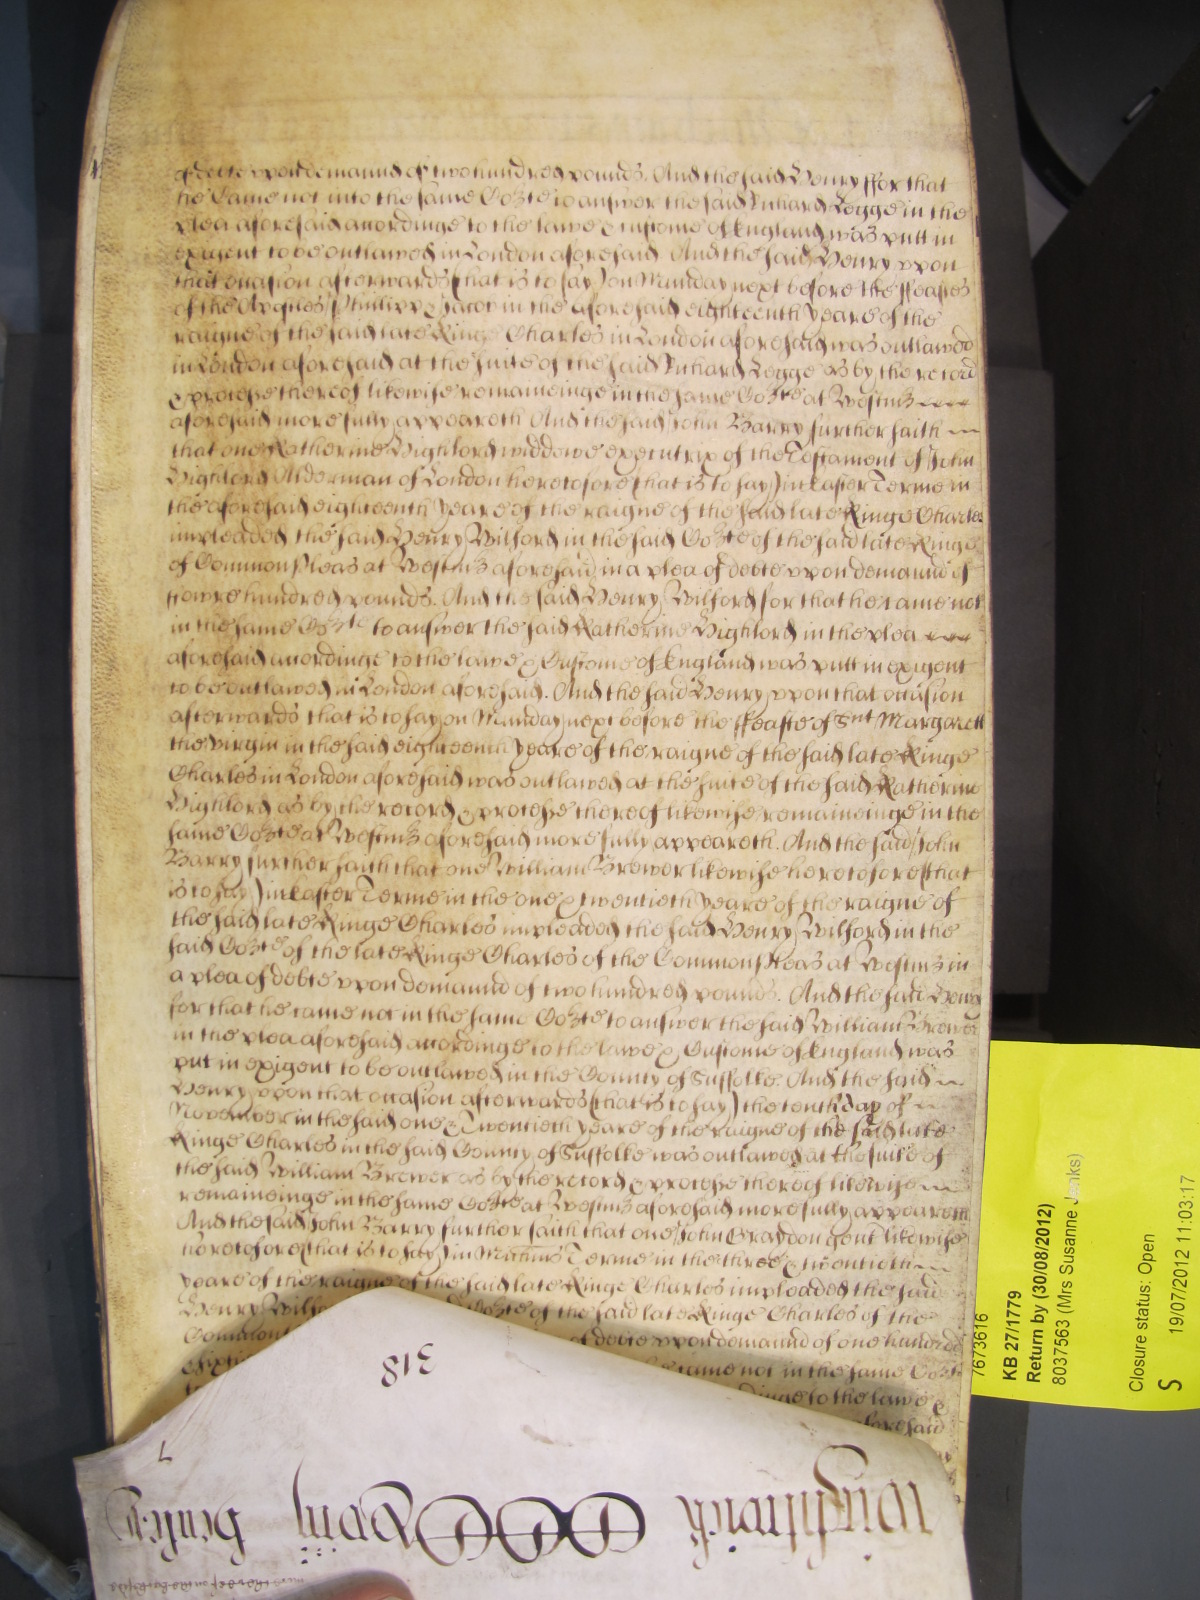 of debte upon demaund of two hundred pounds. And the said Henry ffor that
he Came not into the same Co:rte to answer the said Richard Legge in the
plea aforesaid accordinge to the lawe & custome of England was putt in
exigent to be outlawed in London aforesaid. And the said Henry upon
that occasion afterwards (that is to say) on Munday next before the ffeaste
of the Apostles Phillipp & Jacob in the aforesaid eighteenth yeare of the
raigne of the said late Kinge Charles in London aforesaid was outlawed
in London aforesaid at the suite of the said Richard Legge as by the record
& processe thereof likewise remaineinge in the same Co:rte at Westm:
aforesaid more fully appeareth And the said John Barry further saith
that one Katherine Highlord widdowe executrix of the Testament of John
Highlord Alderman of London heretofore (that is to say) in Easter Terme in
the aforesaid eighteenth yeare of the raigne of the said late Kinge Charles
impleaded the said Henry Wilford in the said Co:rte of the said late Kinge
of Common Pleas at Westm: aforesaid in a plea of debte upon demaund of
fowre hundred pounds. And the said Henry Wilford for that he came not
in the same Co:rte to answer the said Katherine Highlord in the plea
aforesaid accordinge to the lawe & Custome of England was putt in exigent
to be outlawed in London aforesaid. And the said Henry upon that occasion
afterwards that is to say on Munday next before the ffeaste of Snt Margarett
the virgin in the said eighteenth yeare of the raigne of the said late Kinge
Charles in London aforesaid was outlawed at the suite of the said Katherine
Highlord as by the record & processe thereof likewise remaineinge in the
same Co:rte at Westm: aforesaid more fully appeareth. And the said John
Barry further saith that one William Brewer likewise heretofore (that
is to say) in Easter Terme in the one & twentieth yeare of the raigne of
the said late Kinge Charles impleaded the said Henry Wilford in the
said Co:rte of the late Kinge Charles of the Common Pleas at Westm: in
a plea of debte upon demaund of two hundred pounds. And the said Henry
for that he came not in the same Co:rte to answer the said William Brewer
in the plea aforesaid accordinge to the lawe & Custome of England was
put in exigent to be outlawed in the County of Suffolke. And the said
Henry upon that occasion afterwards (that is to say) the tenth day of
November in the said one & Twentieth yeare of the raigne of the said late
Kinge Charles in the said County of Suffolke was outlawed at the suite of
the said William Brewer as by the record & processe thereof likewise
remaineinge in the same Co:rte at Westm: aforesaid more fully appeareth
And the said John Barry further saith that one John Graydon gent likewise
heretofore (that is to say) in Michms Terme in the three & twentieth
yeare of the raigne of the said late Kinge Charles impleaded the said
Henry Co:rte of the said late Kinge Charles of the
Common of debte upon demaund of one hundred
came not in the same Co:rte
to the lawe &
aforesaid
318
7
7673616
KB 27/1779
Return by (30/08/2012)
8037563 (Mrs Susanne Jenks)
Closure status: Open
S 19/07/2012 11:03:17